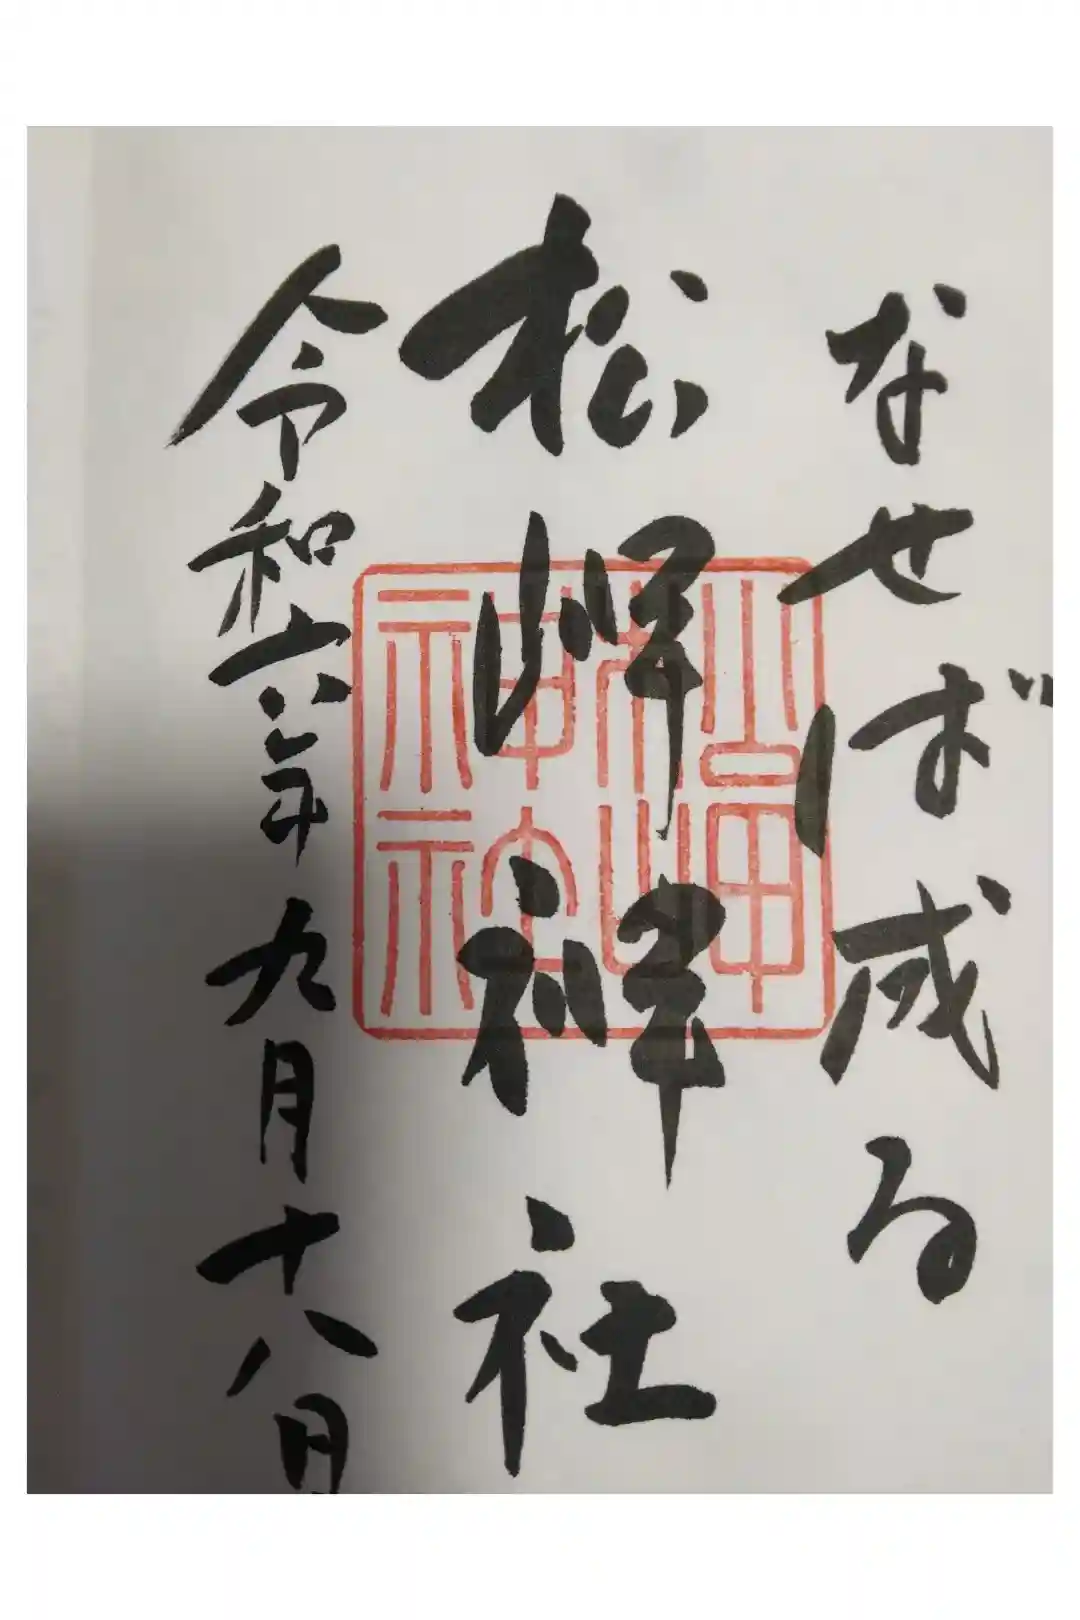 なせば成る
松岬神社
松岬神社
令和六年九月十八日